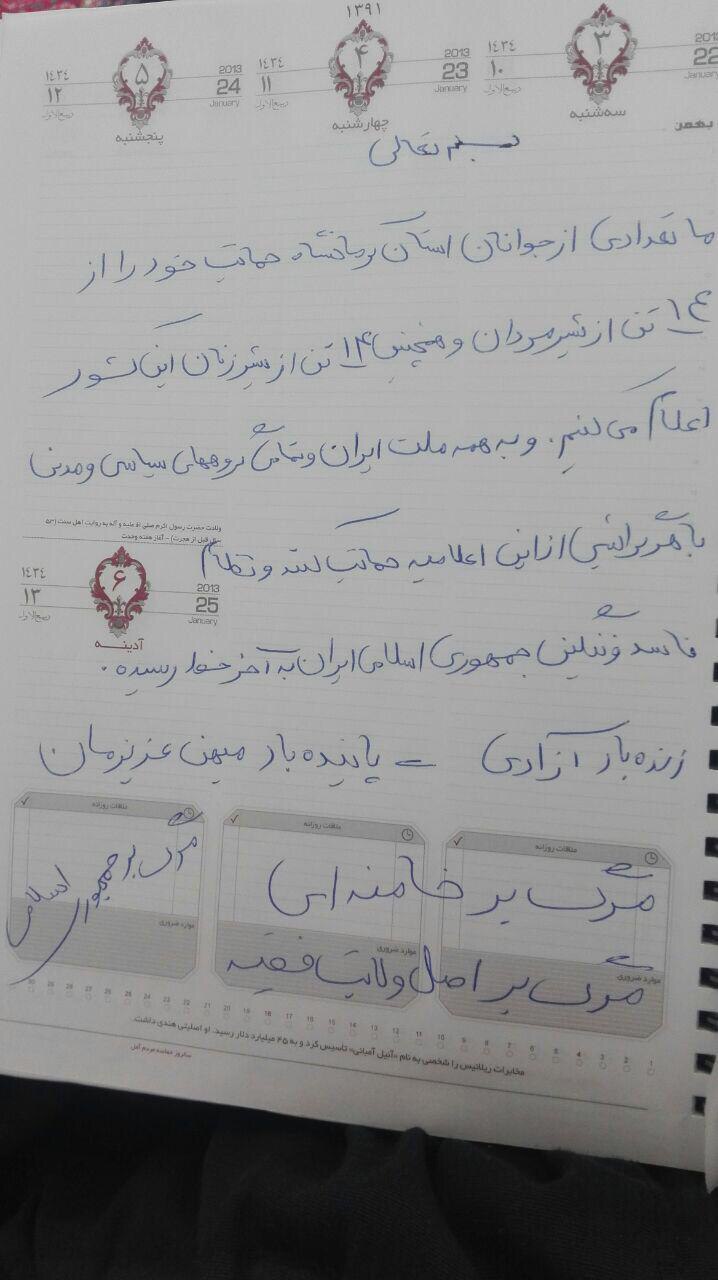 ۱۳۹۱
۳ ۴ ۵
۱٤۳٤ 2013 ۱٤۳٤ 2013 ۱٤۳٤ 2013
۱۰ 22 ۱۱ 23 ۱۲ 24
ربیع‌الاول January ربیع‌الاول January ربیع‌الاول January
بهمن سه‌شنبه چهارشنبه پنجشنبه
بسم تعالی
ما تعدادی از جوانان استان کرمانشاه حمایت خود را از
۱۴ تن از شیرمردان و همچنین ۱۴ تن از شیرزنان این کشور
اعلام می کنیم. و به همه ملت ایران و تمامی گروههای سیاسی و مدنی
ولادت حضرت رسول اکرم صلی الله علیه و آله به روایت اهل سنت (۵۳
سال قبل از هجرت) - آغاز هفته وحدت
با هر گرایشی از این اعلامیه حمایت کنند و نظام
۶
۱٤۳٤ 2013
۱۳ 25
ربیع‌الاول January
آدینه
فاسد و ننگین جمهوری اسلامی ایران به آخر خط رسیده.
زنده باد آزادی = پاینده باد میهن عزیزمان
ملاقات روزانه ملاقات روزانه ملاقات روزانه
مرگ بر خامنه ای
مرگ بر جمهوری اسلامی
موارد ضروری موارد ضروری موارد ضروری
مرگ بر اصل ولایت فقیه
1 2 3 4 5 6 7 8 9 10 11 12 13 14 15 16 17 18 19 20 21 22 23 24 25 26 27 28 29 30
مخابرات ریلاینس را شخصی به نام «آنیل آمبانی» تاسیس کرد و به ۴۵ میلیارد دلار رسید. او اصلیتی هندی داشت.
سالروز حماسه مردم آمل